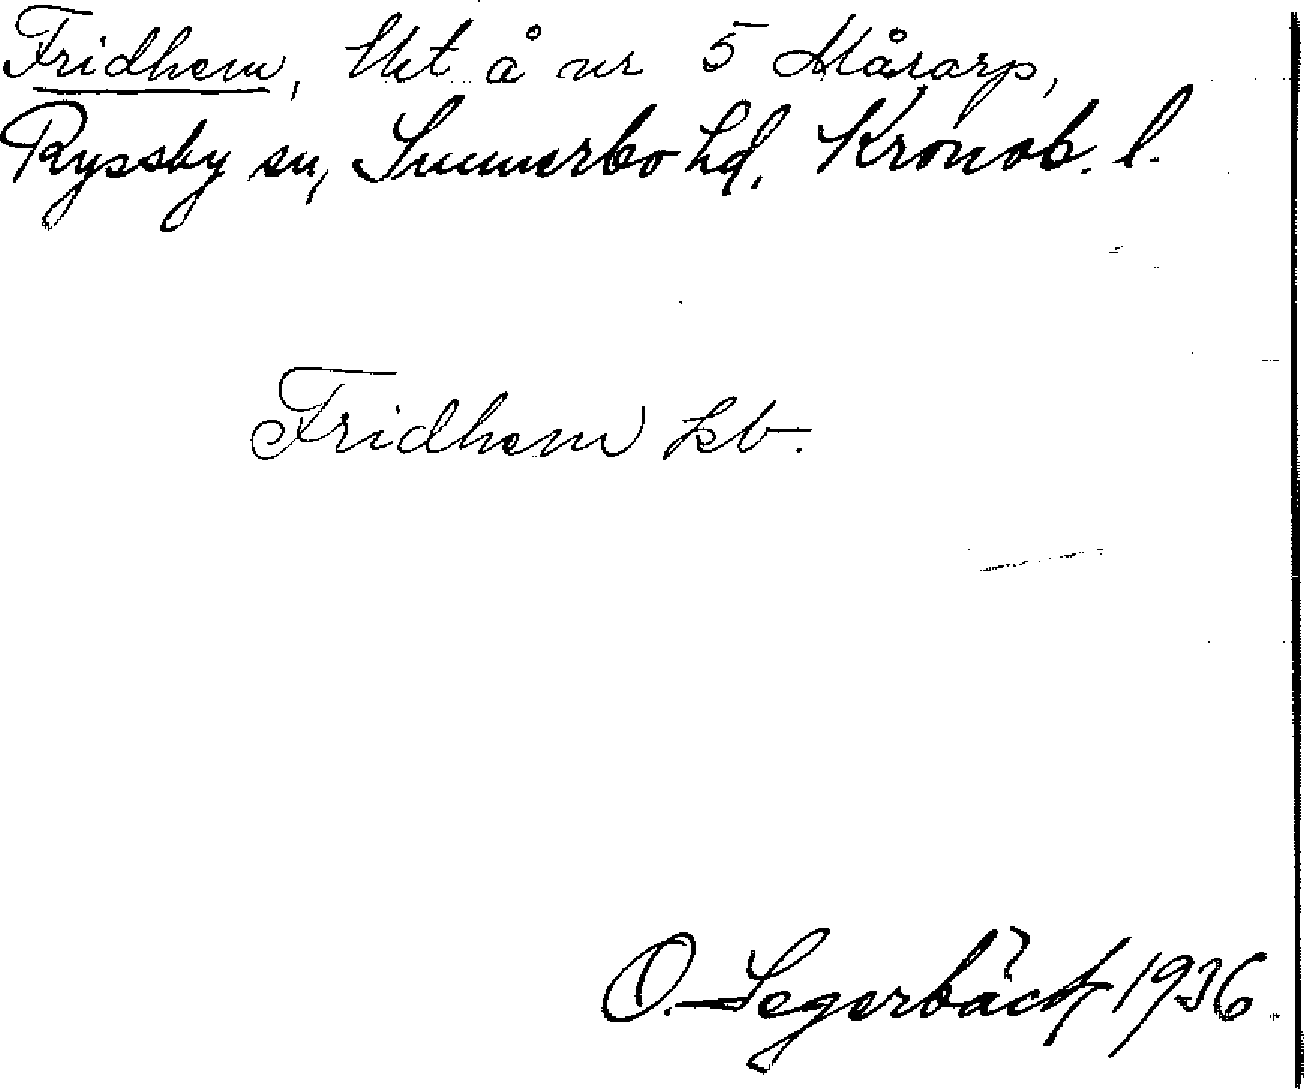 Fridhem, lht å nr 5 Mårarp,
Ryssby sn, Sunnerbo hd, Kronob. l.
Fridhem kb.
O. Segerbäck 1936